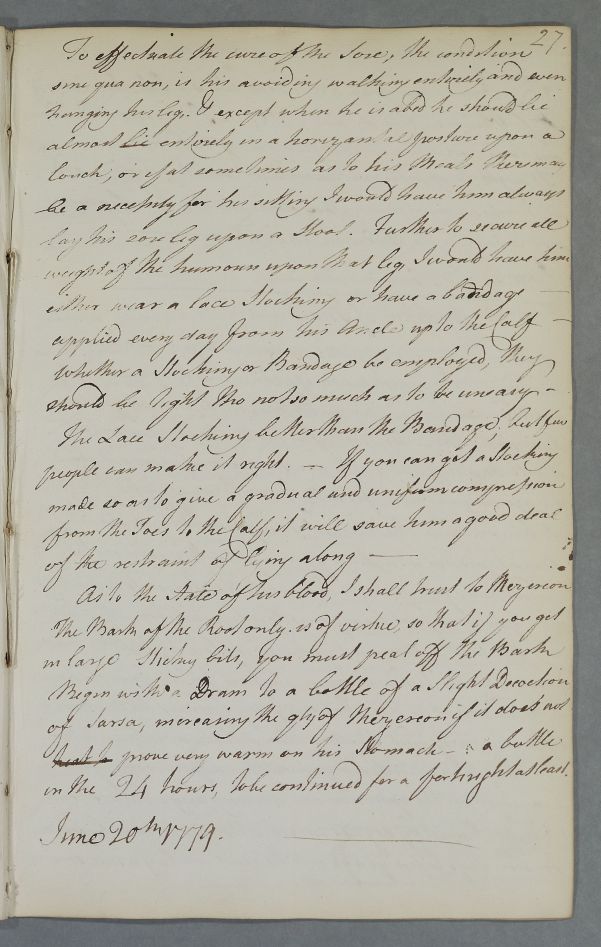 27.
To effectuate the cure of the Sore, the condition
sine qua non, is his avoiding walking entirely and even
hanging his leg. & except when he is abed he should lie
almost lie entirely in a horizantal posture upon a
Couch, or if at sometimes as to his Meals there may
be a necessity for his sitting I would have him always
lay his sore leg upon a Stool. Further to secure all
weight of the humours upon that leg I would have him
either wear a lace Stocking or have a bandage —
applied every day from his Ancle up to the Calf —
Whether a Stocking or Bandage be employed, they
should be tight tho not so much as to be uneasy —
The Lace Stocking better than the Bandage, but few
people can make it right. — If you can get a Stocking
made so as to give a gradual and uniform compression
from the Toes to the Calf, it will save him a good deal
of the restraint of lying along —
As to the State of his blood, I shall trust to Mezereon
The Bark of the Root only is of virtue, so that if you get
in large Sticky bits, you must peal off the Bark
Begin with a Dram to a bottle of a Slight Decoction
of Sarsa, increasing the qty of Mezereon if it does not
prove very warm on his Stomach — a bottle
in the 24 hours, to be continued for a fortnight at least.
June 20th 1779.